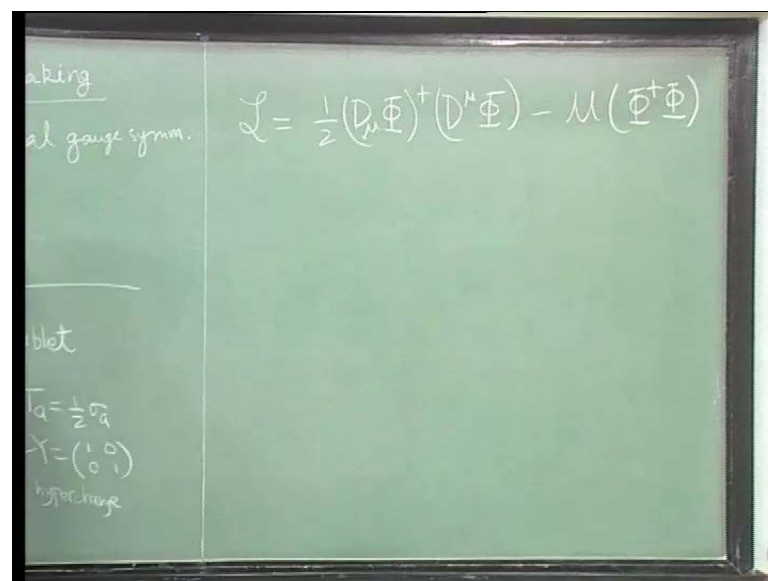 aking
al gauge symm.
blet
T_a = 1/2 σ_a
-Y = (1 0
0 1)
hypercharge
ℒ = 1/2 (D_μ Φ)^† (D^μ Φ) − U(Φ^† Φ)